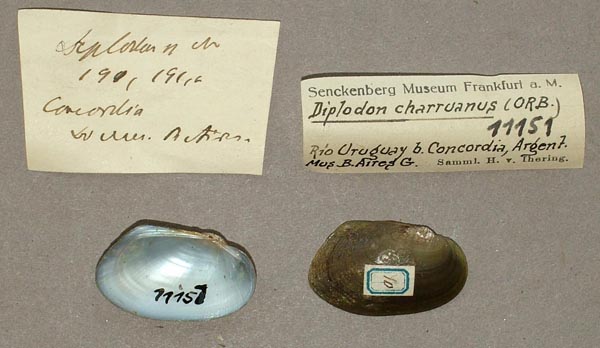 Diplodon
190, 191,a
Concordia
Senckenberg Museum Frankfurt a. M.
Diplodon charruanus (ORB.)
11151
Rio Uruguay b. Concordia, Argent.
Mus. B. Aires G. Samml. H. v. Ihering.
11151
10